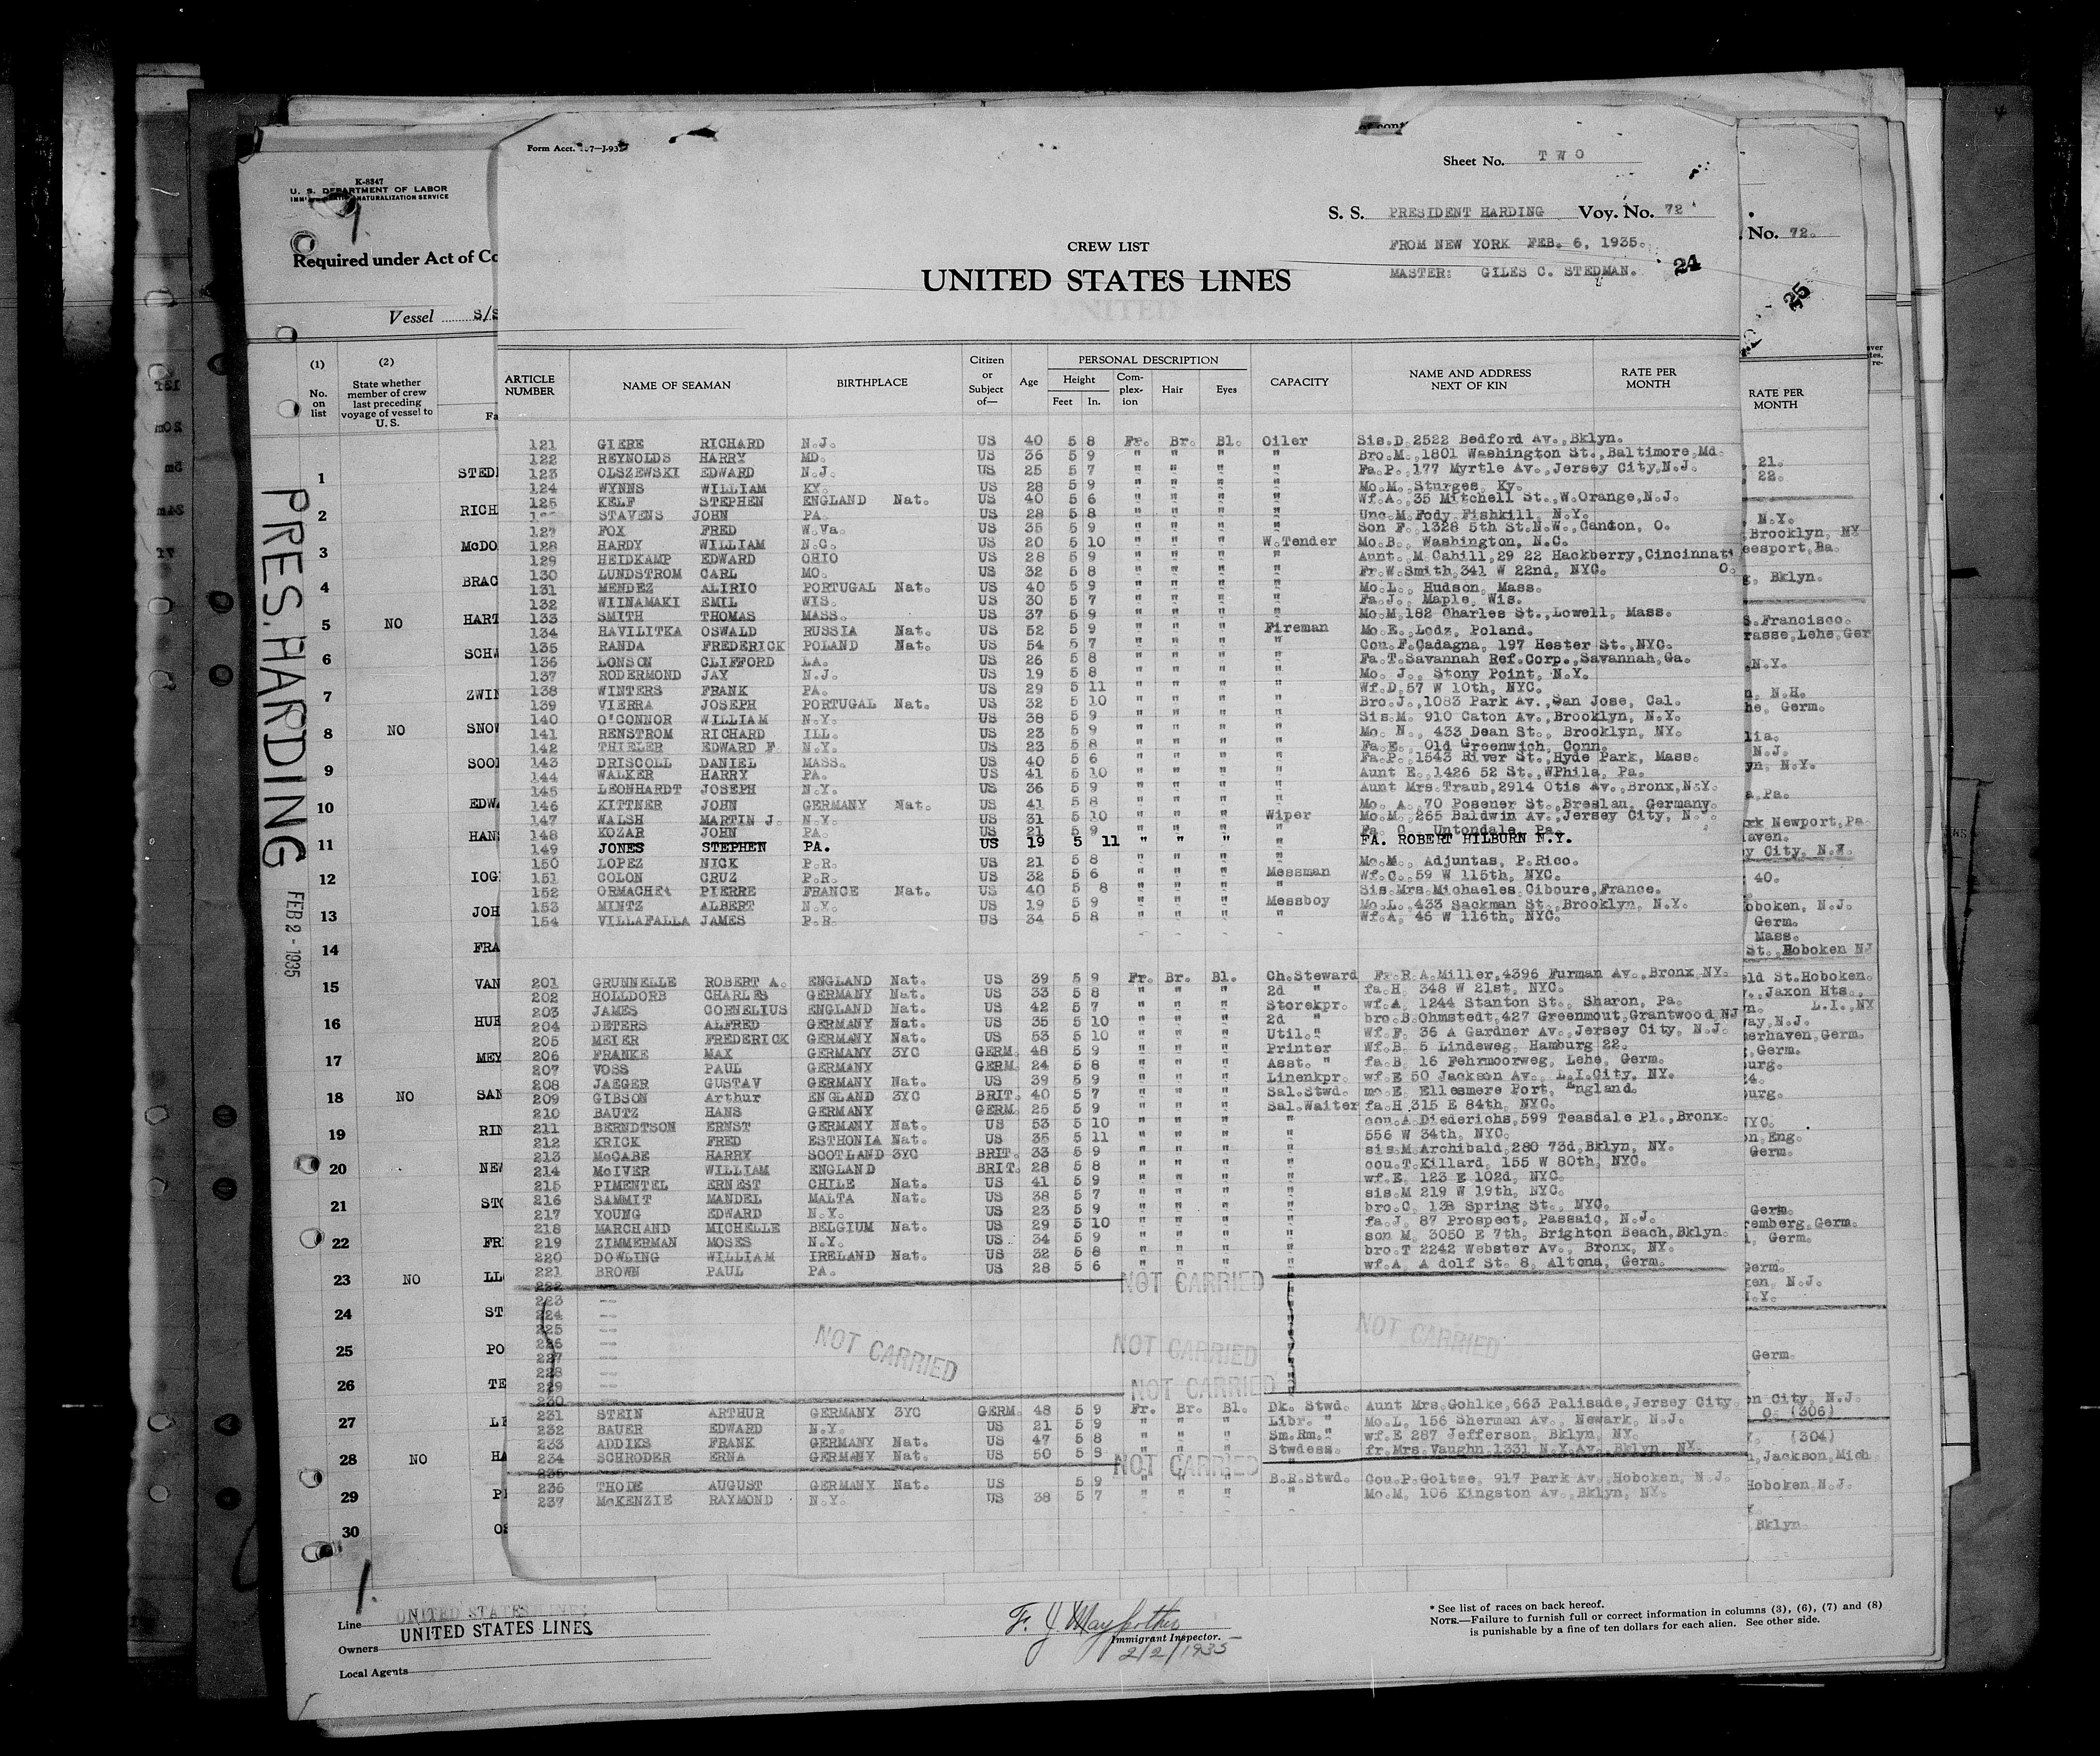 Form Acct.
Sheet No. TWO
K-8347
U. S. DEPARTMENT OF LABOR
NATURALIZATION SERVICE
S. S. PRESIDENT HARDING Voy. No. 72
No. 72.
FROM NEW YORK FEB. 6, 1935.
CREW LIST
UNITED STATES LINES
MASTER: GILES C. STEDMAN.
24
25
Required under Act of Co
Vessel S/S
(1) (2)
No. on list
State whether member of crew last preceding voyage of vessel to U. S.
ARTICLE NUMBER NAME OF SEAMAN BIRTHPLACE Citizen or Subject of— Age PERSONAL DESCRIPTION Height Feet In. Complexion Hair Eyes CAPACITY NAME AND ADDRESS NEXT OF KIN RATE PER MONTH
RATE PER MONTH
121 GIERE RICHARD N.J. US 40 5 8 Fr. Br. Bl. Oiler Sis.D.2522 Bedford Av.,Bklyn.
122 REYNOLDS HARRY MD. US 36 5 9 " " " " Bro.M.,1801 Washington St.,Baltimore,Md.
123 OLSZEWSKI EDWARD N.J. US 25 5 7 " " " " Fa.P.,177 Myrtle Av.,Jersey City,N.J.
124 WYNNS WILLIAM KY. US 28 5 9 " " " " Mo.M.,Sturges, Ky.
125 KELF STEPHEN ENGLAND Nat. US 40 5 6 " " " " Wf.A., 35 Mitchell St.,W.Orange,N.J.
STAVENS JOHN PA. US 28 5 8 " " " " Unc.M.Fody Fishkill, N.Y.
127 FOX FRED W.Va. US 35 5 9 " " " " Son F. 1328 5th St.N.W.,Canton, O.
128 HARDY WILLIAM N.C. US 20 5 10 " " " W.Tender Mo.B., Washington, N.C.
129 HEIDKAMP EDWARD OHIO US 28 5 9 " " " " Aunt. M.Cahill,29 22 Hackberry,Cincinnati O.
130 LUNDSTROM CARL MO. US 32 5 8 " " " " Fr.W.Smith,341 W 22nd, NYC.
131 MENDEZ ALIRIO PORTUGAL Nat. US 40 5 9 " " " " Mo.L., Hudson, Mass.
132 WIINAMAKI EMIL WIS. US 30 5 7 " " " " Fa.J., Maple, Wis.
133 SMITH THOMAS MASS. US 37 5 9 " " " " Mo.M.182 Charles St.,Lowell, Mass.
134 HAVILITKA OSWALD RUSSIA Nat. US 52 5 9 " " " Fireman Mo.E., Lodz, Poland.
135 RANDA FREDERICK POLAND Nat. US 54 5 7 " " " " Cou.F.Cadagna, 197 Hester St.,NYC.
136 LONSON CLIFFORD LA. US 26 5 8 " " " " Fa.T.Savannah Ref.Corp.,Savannah,Ga.
137 RODERMOND JAY N.J. US 19 5 8 " " " " Mo. J., Stony Point, N.Y.
138 WINTERS FRANK PA. US 29 5 11 " " " " Wf.D.57 W 10th, NYC.
139 VIERRA JOSEPH PORTUGAL Nat. US 32 5 10 " " " " Bro.J.,1083 Park Av.,San Jose, Cal.
140 O'CONNOR WILLIAM N.Y. US 38 5 9 " " " " Sis.M. 910 Caton Av.,Brooklyn, N.Y.
141 RENSTROM RICHARD ILL. US 23 5 9 " " " " Mo. N., 433 Dean St., Brooklyn, NY.
142 THIELER EDWARD F. N.Y. US 23 5 8 " " " " Fa.E., Old Greenwich, Conn.
143 DRISCOLL DANIEL MASS. US 40 5 6 " " " " Fa.P. 1543 River St.,Hyde Park, Mass.
144 WALKER HARRY PA. US 41 5 10 " " " " Aunt E.,1426 52 St.,WPhila, Pa.
145 LEONHARDT JOSEPH N.Y. US 36 5 9 " " " " Aunt Mrs.Traub,2914 Otis Av.,Bronx,N.Y.
146 KITTNER JOHN GERMANY Nat. US 41 5 8 " " " " Mo. A. 70 Posener St.,Breslau, Germany.
147 WALSH MARTIN J. N.Y. US 31 5 10 " " " Wiper Mo.M. 265 Baldwin Av.,Jersey City, N.
148 KOZAR JOHN PA. US 21 5 9 " " " " Fa. C., Untondale, Pa.
149 JONES STEPHEN PA. US 19 5 11 " " " " FA. ROBERT HILBURN N.Y.
150 LOPEZ NICK P.R. US 21 5 8 " " " " Mo.M., Adjuntas, P.Rico.
151 COLON CRUZ P.R. US 32 5 6 " " " Messman Wf.C. 59 W 115th, NYC.
152 ORMACHEA PIERRE FRANCE Nat. US 40 5 8 " " " " Sis.Mrs.Michaeles Ciboure,France.
153 MINTZ ALBERT N.Y. US 19 5 9 " " " Messboy Mo.L. 433 Sackman St.,Brooklyn, N.Y.
154 VILLAFALLA JAMES P.R. US 34 5 8 " " " " Wf.A. 46 W 116th, NYC.
201 GRUNNELLE ROBERT A. ENGLAND Nat. US 39 5 9 Fr. Br. Bl. Ch.Steward Fr.R.A.Miller,4396 Furman Av.,Bronx NY.
202 HOLLDORB CHARLES GERMANY Nat. US 33 5 8 " " " 2d " fa.H. 348 W 21st, NYC.
203 JAMES CORNELIUS ENGLAND Nat. US 42 5 7 " " " Storekpr. wf.A. 1244 Stanton St., Sharon, Pa.
204 DETERS ALFRED GERMANY Nat. US 35 5 10 " " " 2d " bro.B.Ohmstedt,427 Greenmout,Grantwood,NJ
205 MEIER FREDERICK GERMANY Nat. US 53 5 10 " " " Util." Wf.F. 36 A Gardner Av.,Jersey City, N.J.
206 FRANKE MAX GERMANY 3YC GERM. 48 5 9 " " " Printer Wf.B. 5 Lindeweg, Hamburg 22.
207 VOSS PAUL GERMANY GERM. 24 5 8 " " " Asst. " fa.B. 16 Fehrmoorweg, Lehe, Germ.
208 JAEGER GUSTAV GERMANY Nat. US 39 5 9 " " " Linenkpr. wf.E 50 Jackson Av., L.I.City, NY.
209 GIBSON Arthur ENGLAND 3YC BRIT. 40 5 7 " " " Sal.Stwd. mo.E. Ellesmere Port, England.
210 BAUTZ HANS GERMANY GERM. 25 5 9 " " " Sal.Waiter fa.H.315 E 84th, NYC.
211 BERNDTSON ERNST GERMANY Nat. US 53 5 10 " " " " cou.A.Diederichs,599 Teasdale Pl.,Bronx.
212 KRICK FRED ESTHONIA Nat. US 35 5 11 " " " " 556 W 34th, NYC.
213 McCABE HARRY SCOTLAND 3YC BRIT. 33 5 9 " " " " sis.M.Archibald,280 73d,Bklyn, NY.
214 McIVER WILLIAM ENGLAND BRIT. 28 5 8 " " " " cou.T.Killard, 155 W 80th, NYC.
215 PIMENTEL ERNEST CHILE Nat. US 41 5 9 " " " " wf.E. 123 E 102d, NYC.
216 SAMMIT MANDEL MALTA Nat. US 38 5 7 " " " " sis.M 219 W 19th, NYC.
217 YOUNG EDWARD N.Y. US 23 5 9 " " " " bro.C. 138 Spring St., NYC.
218 MARCHAND MICHELLE BELGIUM Nat. US 29 5 10 " " " " fa.J. 87 Prospect, Passaic, N.J.
219 ZIMMERMAN MOSES N.Y. US 34 5 9 " " " " son M. 3050 E 7th, Brighton Beach,Bklyn.
220 DOWLING WILLIAM IRELAND Nat. US 32 5 8 " " " " bro.T 2242 Webster Av., Bronx, NY.
221 BROWN PAUL PA. US 28 5 6 " " " " wf.A. A dolf St. 8, Altona, Germ.
222 NOT CARRIED
223
224
225
226 NOT CARRIED NOT CARRIED NOT CARRIED
227
228
229 NOT CARRIED
230
231 STEIN ARTHUR GERMANY 3YC GERM. 48 5 9 Fr. Br. Bl. Dk. Stwd. Aunt Mrs.Gohlke,663 Palisade,Jersey City
232 BAUER EDWARD N.Y. US 21 5 9 " " " Libr. " Mo.L. 156 Sherman Av., Newark, N.J.
233 ADDIKS FRANK GERMANY Nat. US 47 5 8 " " " Sm.Rm." wf.E 287 Jefferson, Bklyn, NY.
234 SCHRODER ERNA GERMANY Nat. US 50 5 8 " " " Stwdess. fr.Mrs.Vaughn,1331 N.Y.Av.,Bklyn, NY.
235 NOT CARRIED
236 THODE AUGUST GERMANY Nat. US 5 9 " " " B.R.Stwd. Cou.P.Goltze, 917 Park Av.,Hoboken, N.J.
237 McKENZIE RAYMOND N.Y. US 38 5 7 " " " " Mo.M. 106 Kingston Av.,Bklyn, NY.
1 STED
2 RICH
3 McDO
4 BRAC
5 NO HART
6 SCHW
7 ZWIN
8 NO SNOW
9 SOO
10 EDWA
11 HANS
12 IOG
13 JOH
14 FRA
15 VAN
16 HUE
17 MEY
18 NO SAN
19 RIN
20 NEW
21 STO
22 FRI
23 NO LL
24 ST
25 PO
26 TE
27 LE
28 NO HA
29 P
30 OS
PRES. HARDING FEB 2 - 1935
21.
22.
N.Y.
Brooklyn, NY
eesport,Pa.
Bklyn.
S.Francisco.
rasse,Lehe,Ger
N.Y.
N.H.
he, Germ.
lia.
N.J.
yn, N.Y.
a,Pa.
rk Newport,Pa
haven.
y City, N.Y.
40.
oboken, N.J.
Germ.
Mass.
St., Hoboken NJ
eld St.Hoboken.
Jaxon Hts.,
L.I., NY
way,N.J.
merhaven,Germ.
Germ.
burg.
24.
burg.
NYC.
on,Eng.
Germ.
Germ.
remberg,Germ.
Germ.
Germ.
ken, N.J.
N.Y.
Germ.
on City, N.J.
O. (306)
(304)
Jackson,Mich
Hoboken,N.J.
Bklyn.
Line UNITED STATES LINES
Owners UNITED STATES LINES
Local Agents
F. J. Mayforther
Immigrant Inspector.
2/2/1935
* See list of races on back hereof.
NOTE.—Failure to furnish full or correct information in columns (3), (6), (7) and (8)
is punishable by a fine of ten dollars for each alien. See other side.